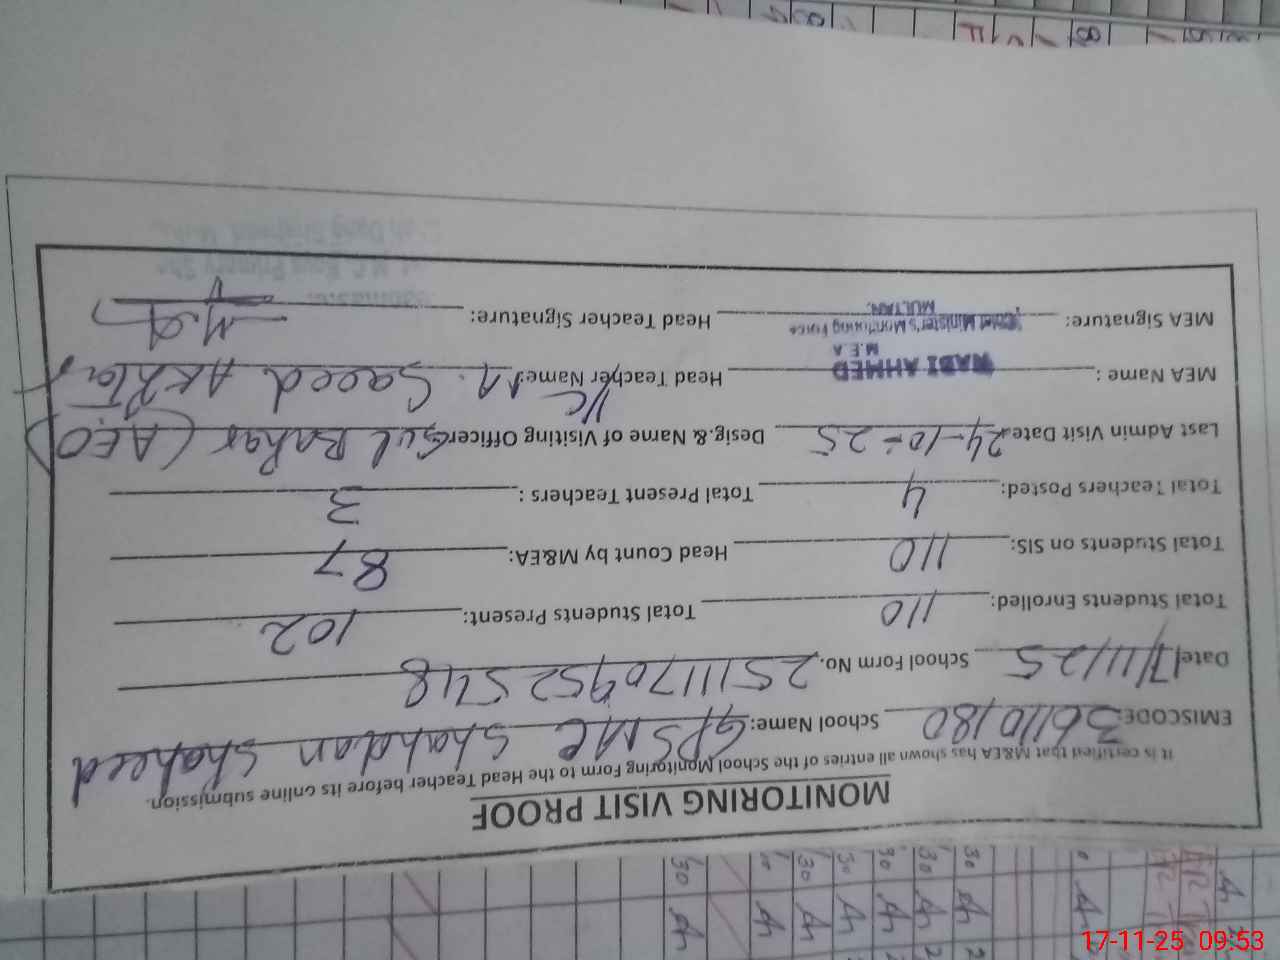 MONITORING VISIT PROOF
It is certified that M&EA has shown all entries of the School Monitoring Form to the Head Teacher before its online submission.
EMISCODE: 36110180 School Name: GPS MC Shahdan Shaheed
Date: 17/11/25 School Form No. 251117095254B
Total Students Enrolled: 110 Total Students Present: 102
Total Students on SIS: 110 Head Count by M&EA: 87
Total Teachers Posted: 4 Total Present Teachers : 3
Last Admin Visit Date: 24-10-25 Desig.& Name of Visiting Officer: Gul Bahar (AEO)
MEA Name : NABI AHMED Head Teacher Name: I/C M. Saeed Akhtar
M.E.A
MEA Signature: Chief Minister's Monitoring Force Head Teacher Signature:
MULTAN.
17-11-25 09:53